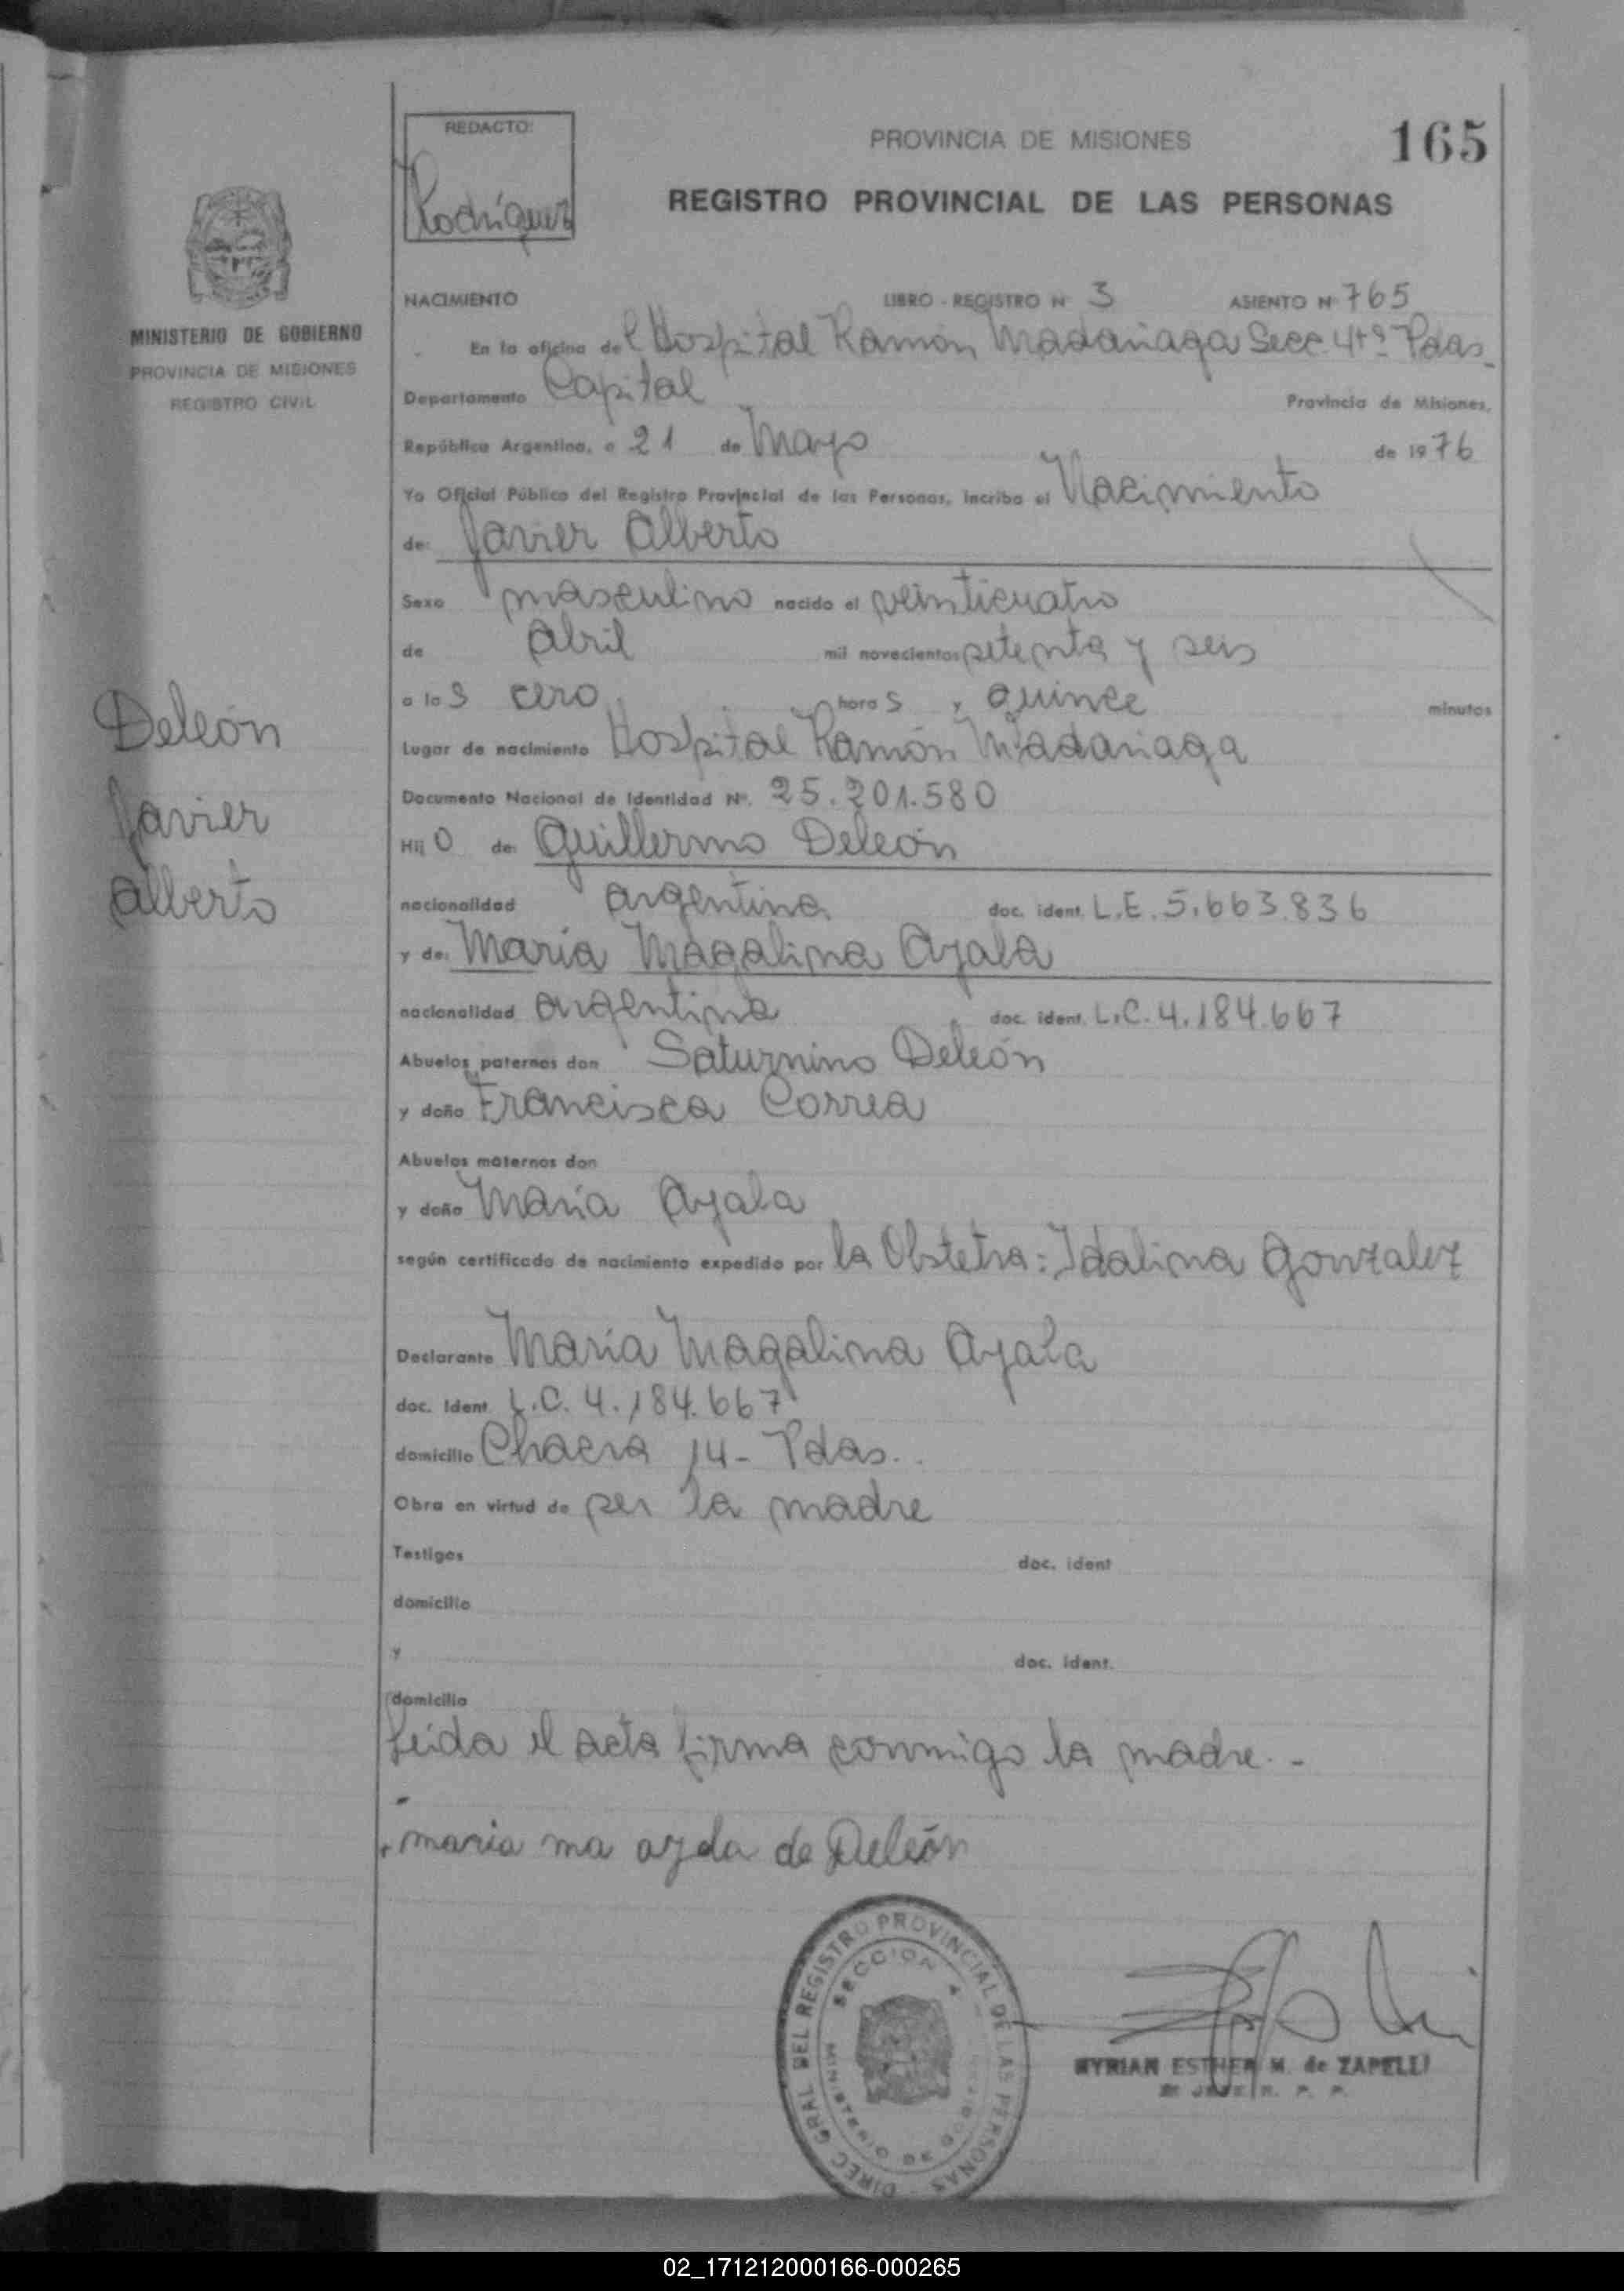 165
REDACTO:
Rodríguez
PROVINCIA DE MISIONES
REGISTRO PROVINCIAL DE LAS PERSONAS
MINISTERIO DE GOBIERNO
PROVINCIA DE MISIONES
REGISTRO CIVIL
NACIMIENTO LIBRO - REGISTRO Nº 3 ASIENTO Nº 765
En la oficina del Hospital Ramón Madariaga Secc. 4tª Pdas.
Departamento Capital Provincia de Misiones,
República Argentina, a 21 de Mayo de 1976
Yo Oficial Público del Registro Provincial de las Personas, inscribo el Nacimiento
de: Javier Alberto
Sexo masculino nacido el veinticuatro
de Abril mil novecientos setenta y seis
a las cero horas y quince minutos
Lugar de nacimiento Hospital Ramón Madariaga
Documento Nacional de Identidad Nº. 25.201.580
Hijo de: Guillermo Deleón
nacionalidad argentina doc. ident. L.E. 5.663.836
y de: María Magalina Ayala
nacionalidad argentina doc. ident. L.C. 4.184.667
Abuelos paternos don Saturnino Deleón
y doña Francisca Correa
Abuelos maternos don
y doña María Ayala
según certificado de nacimiento expedido por la Obstetra: Idalina Gonzalez
Declarante María Magalina Ayala
doc. Ident. L.C. 4.184.667
domicilio Chacra 14- Pdas.
Obra en virtud de ser la madre
Testigos doc. ident
domicilio
y doc. ident.
domicilio
Leida el acta firma conmigo la madre.-
maria ma ayala de Deleón
Deleón
Javier
Alberto
DIREC. GRAL. DEL REGISTRO PROVINCIAL DE LAS PERSONAS
SECCION 4
MINISTERIO DE GOBIERNO
MYRIAN ESTHER M. de ZAPELLI
JEFE R. P. P.
02_171212000166-000265